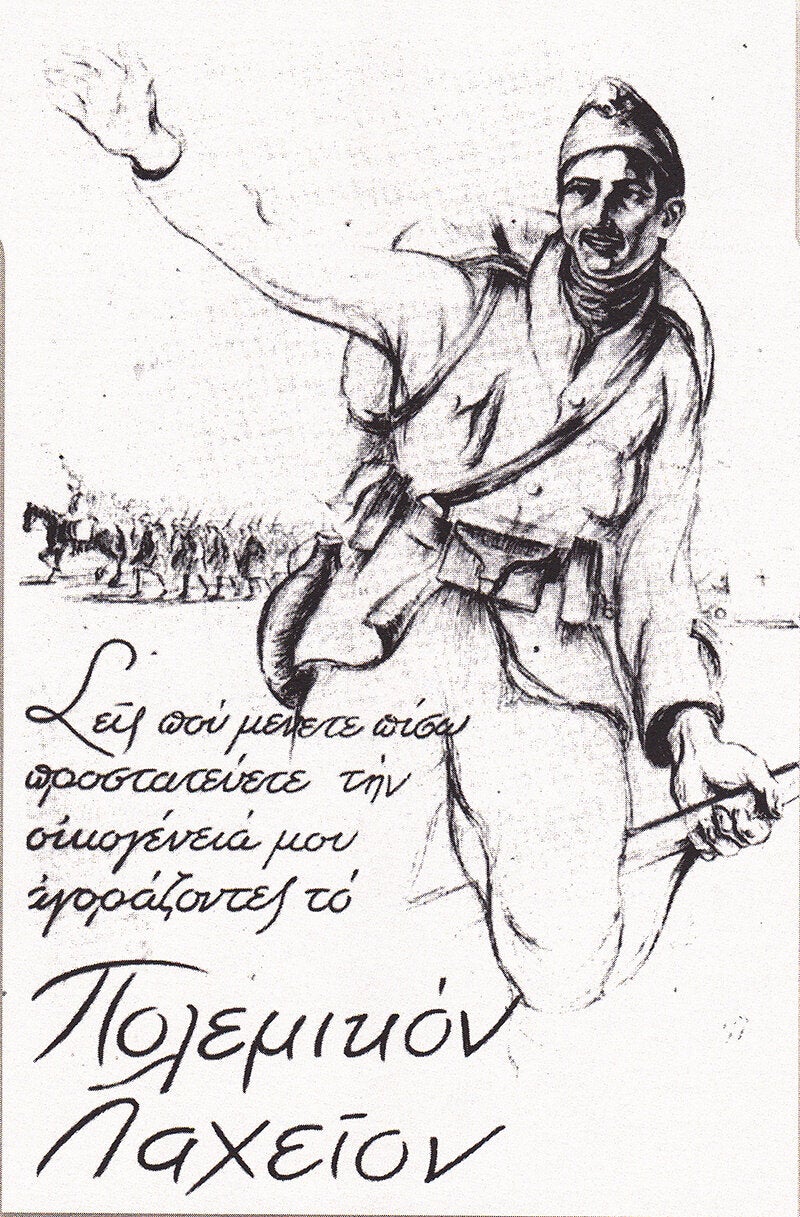 Σεῖς ποὺ μένετε πίσω
προστατεύετε τήν
οἰκογένειά μου
ἀγοράζοντες τό
Πολεμικόν
Λαχεῖον